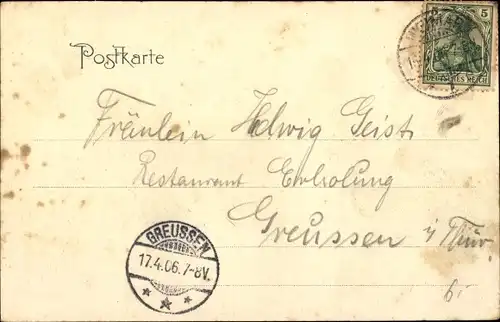 Postkarte
5 5
DEUTSCHES REICH
Fräulein Helwig Geist
Restaurant Erholung
Greussen i/Thür
GREUSSEN
17.4.06.7-8V.